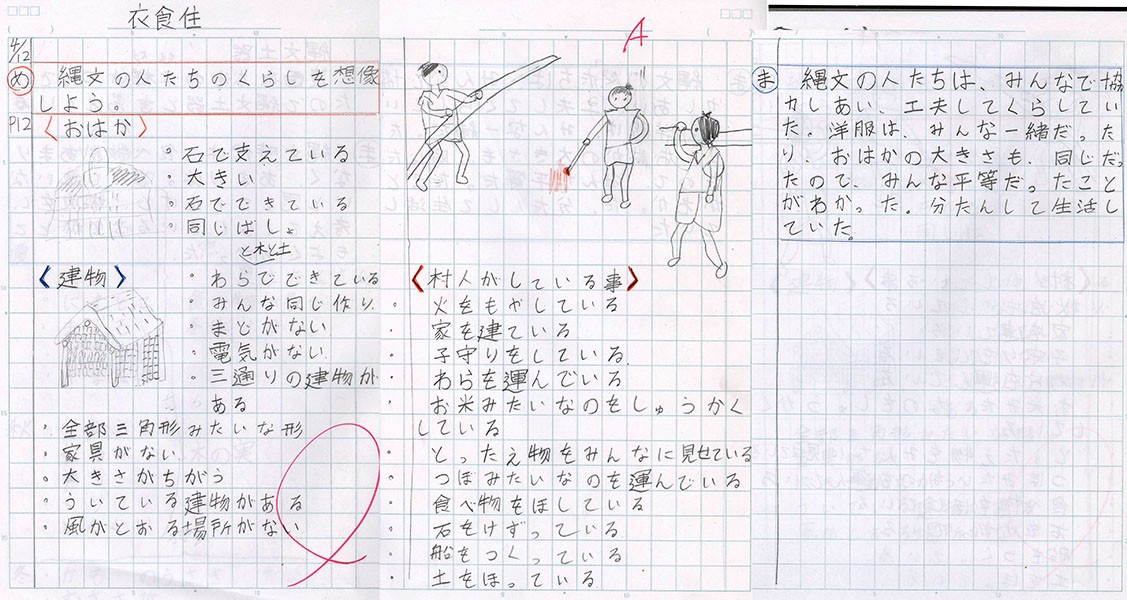 衣食住
4/12
め 縄文の人たちのくらしを想像
しよう。
P12 〈おはか〉
・石で支えている
・大きい
・石でできている
・同じばしょ
と木と土
〈建物〉
・わらでできている
・みんな同じ作り
・まどがない
・電気がない
・三通りの建物が
ある
・全部三角形みたいな形
・家具がない
・大きさがちがう
・ういている建物がある
・風がとおる場所がない
A
〈村人がしている事〉
・火をもやしている
・家を建ている
・子守りをしている
・わらを運んでいる
・お米みたいなのをしゅうかく
している
・とったえ物をみんなに見せている
・つぼみたいなのを運んでいる
・食べ物をほしている
・石をけずっている
・船をつくっている
・土をほっている
ま 縄文の人たちは、みんなで協
力しあい、工夫してくらしてい
た。洋服は、みんな一緒だった
り、おはかの大きさも、同じだっ
たので、みんな平等だったこと
がわかった。分たんして生活し
ていた。